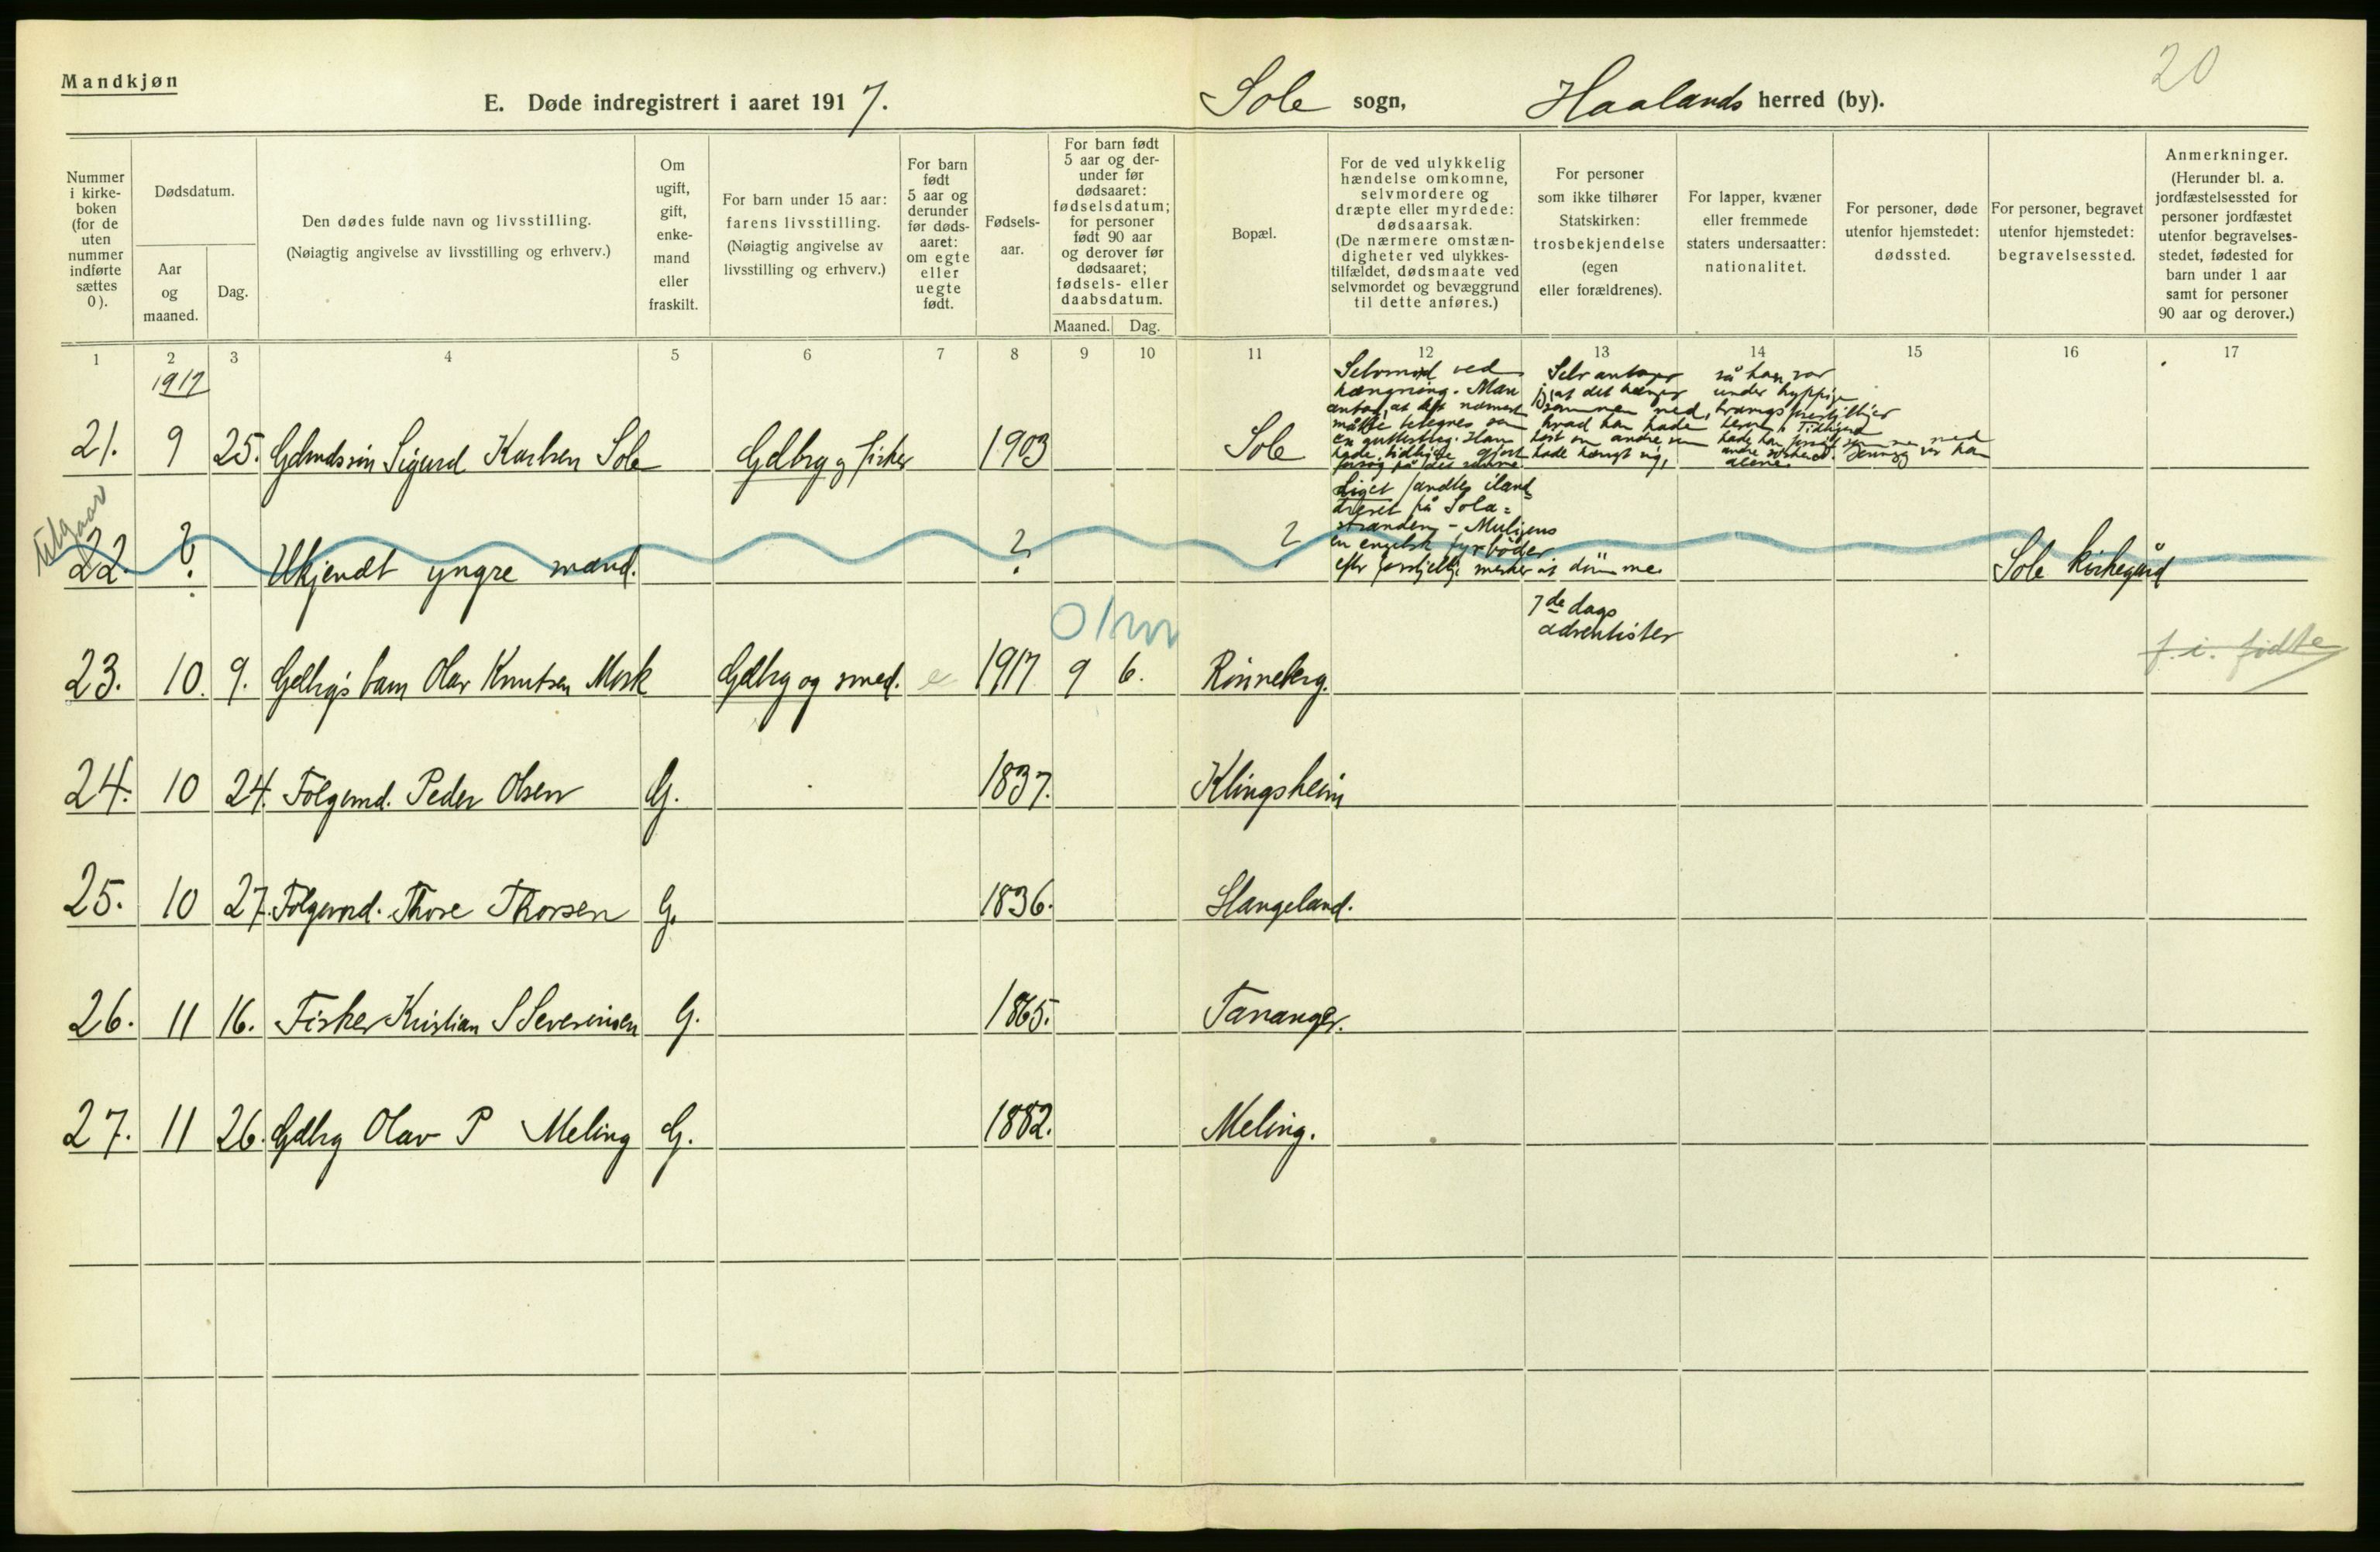 Mandkjøn
20
E. Døde indregistrert i aaret 1917.
Sole sogn, Haalands herred (by).
Nummer i kirke-boken (for de uten nummer indførte sættes 0).
Dødsdatum.
Aar og maaned.
Dag.
Den dødes fulde navn og livsstilling.
(Nøiagtig angivelse av livsstilling og erhverv.)
Om ugift, gift, enke-mand eller fraskilt.
For barn under 15 aar: farens livsstilling.
(Nøiagtig angivelse av livsstilling og erhverv.)
For barn født 5 aar og derunder før døds-aaret: om egte eller uegte født.
Fødsels-aar.
For barn født 5 aar og der-under før dødsaaret: fødselsdatum; for personer født 90 aar og derover før dødsaaret; fødsels- eller daabsdatum.
Maaned. Dag.
Bopæl.
For de ved ulykkelig hændelse omkomne, selvmordere og dræpte eller myrdede: dødsaarsak.
(De nærmere omstæn-digheter ved ulykkes-tilfældet, dødsmaate ved selvmordet og bevæggrund til dette anføres.)
For personer som ikke tilhører Statskirken: trosbekjendelse (egen eller forældrenes).
For lapper, kvæner eller fremmede staters undersaatter: nationalitet.
For personer, døde utenfor hjemstedet: dødssted.
For personer, begravet utenfor hjemstedet: begravelsessted.
Anmerkninger.
(Herunder bl. a. jordfæstelsessted for personer jordfæstet utenfor begravelses-stedet, fødested for barn under 1 aar samt for personer 90 aar og derover.)
1 2 3 4 5 6 7 8 9 10 11 12 13 14 15 16 17
1917
Selvmord ved Selv antager så han var
hængning. Man jeg, at det hænger under hyppige
21. 9 25. Sigurd Karlsen Sole Gdbrg og fisker 1903 Sole
utgaar
Liget fandtes iland-
drevet på Sola-
stranden - Muligens
en engelsk fyrbøder
efter forskjellige merker at dømme.
22. ? Ukjendt yngre mand. ? ? Sole kirkegård
7de dags
adventister
23. 10. 9. Gdbrg's barn Olav Knutsen Mork Gdbrg og smed. e 1917 9 6. Rönneberg. f. i. fødte
24. 10 24. Folgemd. Peder Olsen G. 1837. Klingsheim
25. 10 27. Folgemd. Thore Thorsen G. 1836. Stangeland.
26. 11 16. Fisker Kristian S Severinsen G. 1865. Tananger.
27. 11 26. Gdbrg Olav P Meling G. 1882. Meling.